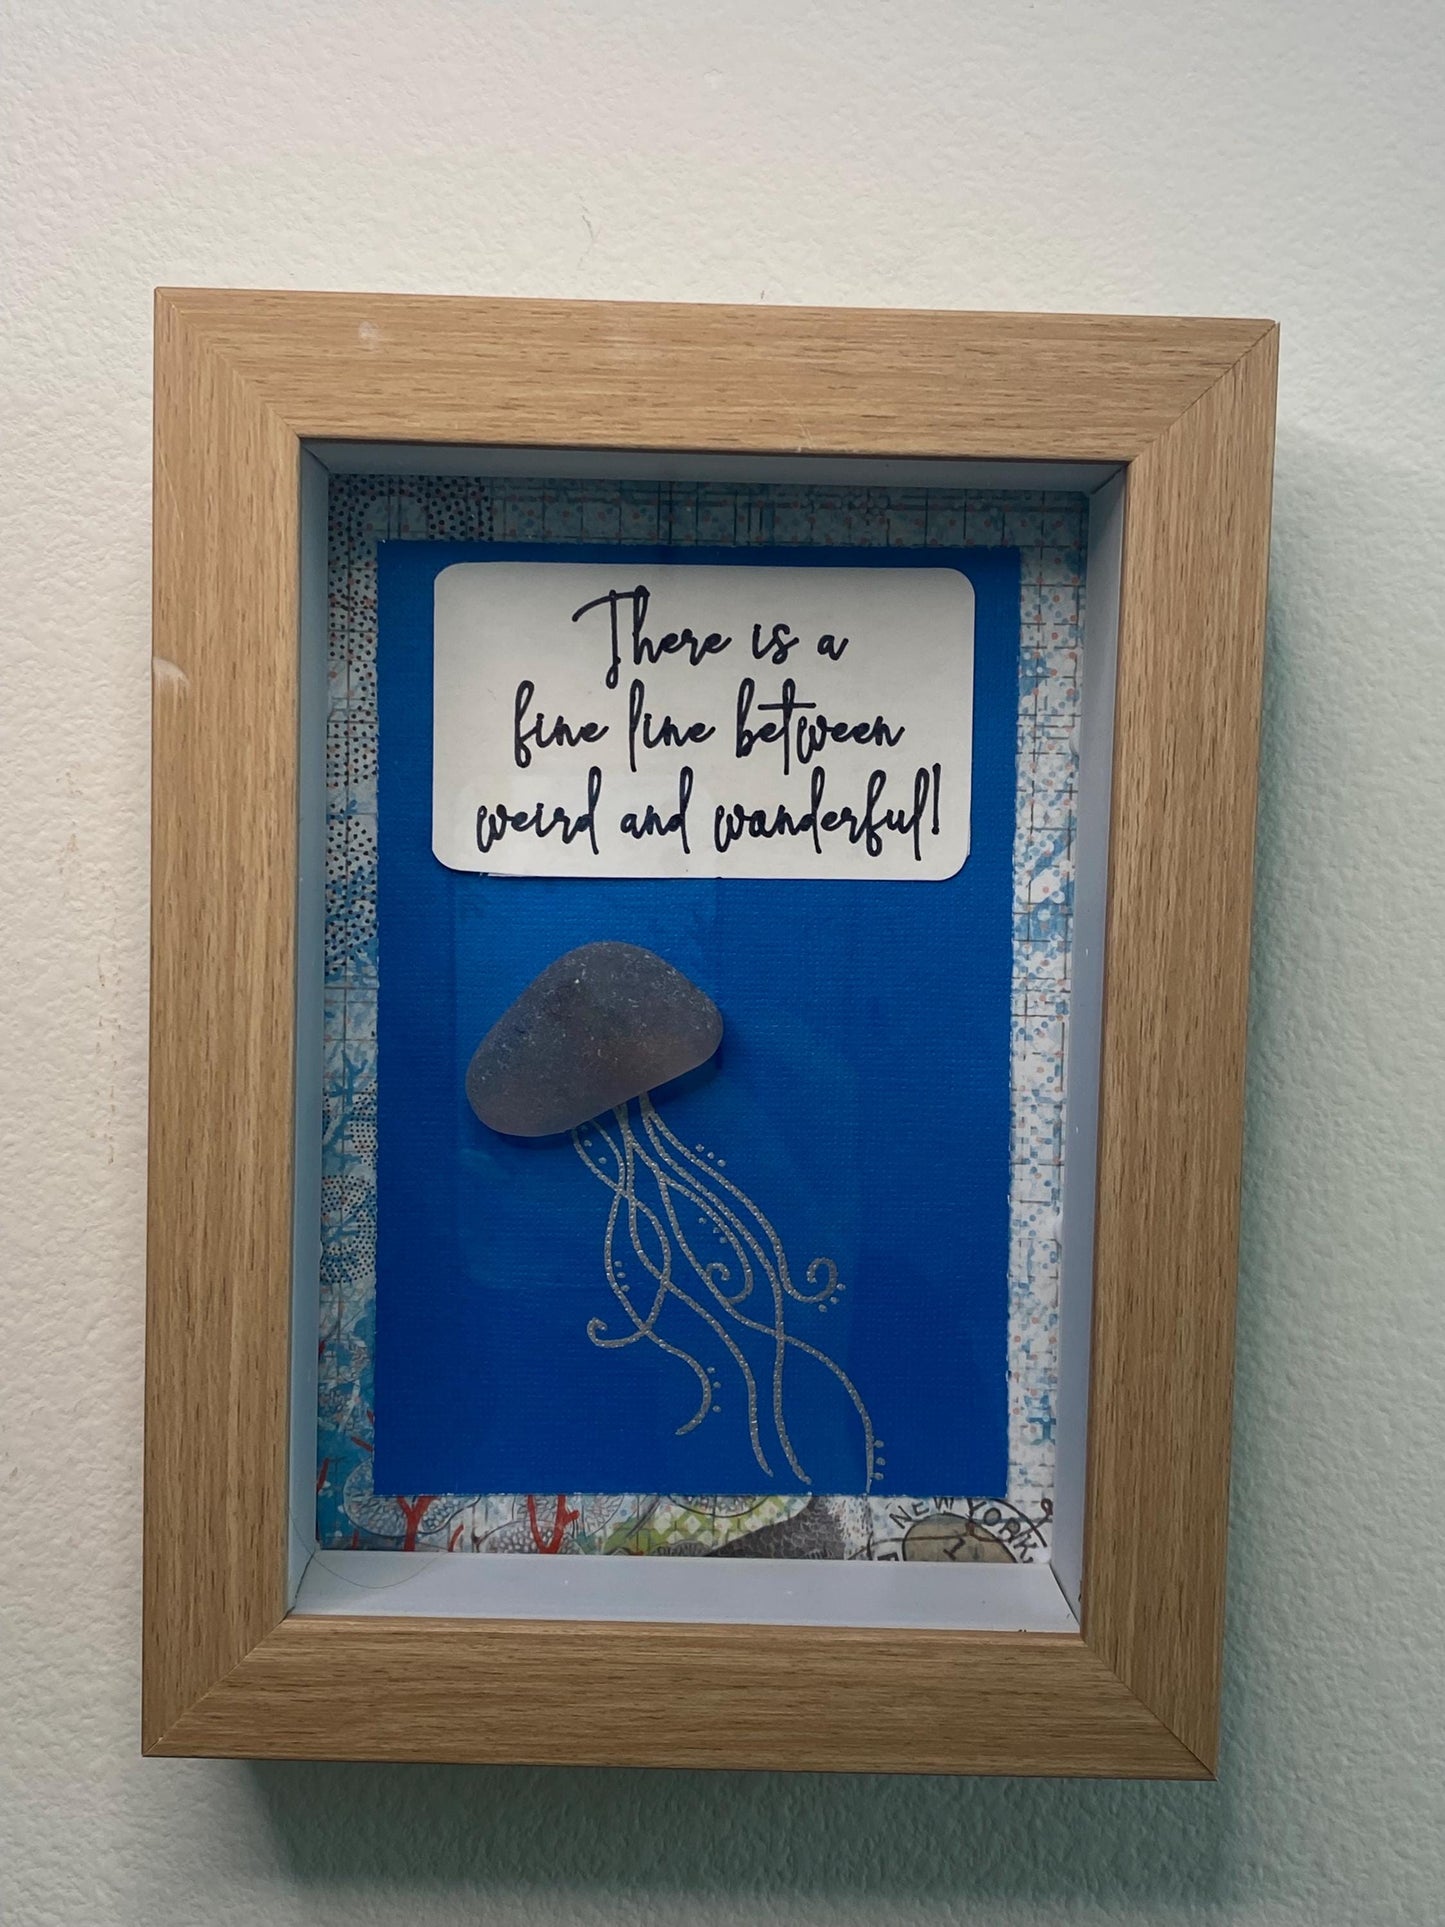 There is a
fine line between
weird and wanderful!
NEW YORK,
1